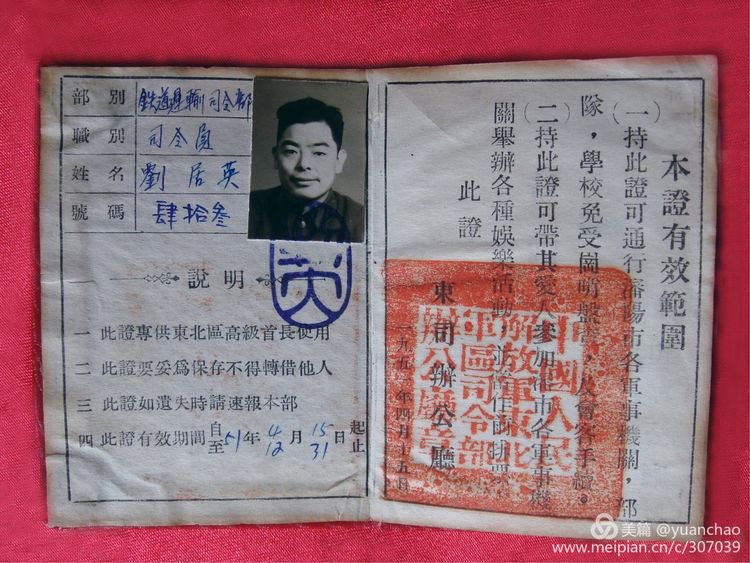 部別 鉄道運輸司令部
職別 司令員
姓名 劉居英
號碼 肆拾叁
說明
一 此證專供東北區高級首長使用
二 此證要妥爲保存不得轉借他人
三 此證如遺失時請速報本部
四 此證有效期間自51年4月15日起
至12 31止
本證有效範圍
(一)持此證可通行瀋陽市各軍事機關，部
隊，學校免受崗哨盤查，及會客手續。
(二)持此證可帶其愛人參加瀋市各軍事機
關舉辦各種娛樂活動
此證
東司辦公廳
一九五一年四月十五日
中國人民
解放軍東北
軍區司令部
辦公廳章
美篇 @yuanchao
www.meipian.cn/c/307039